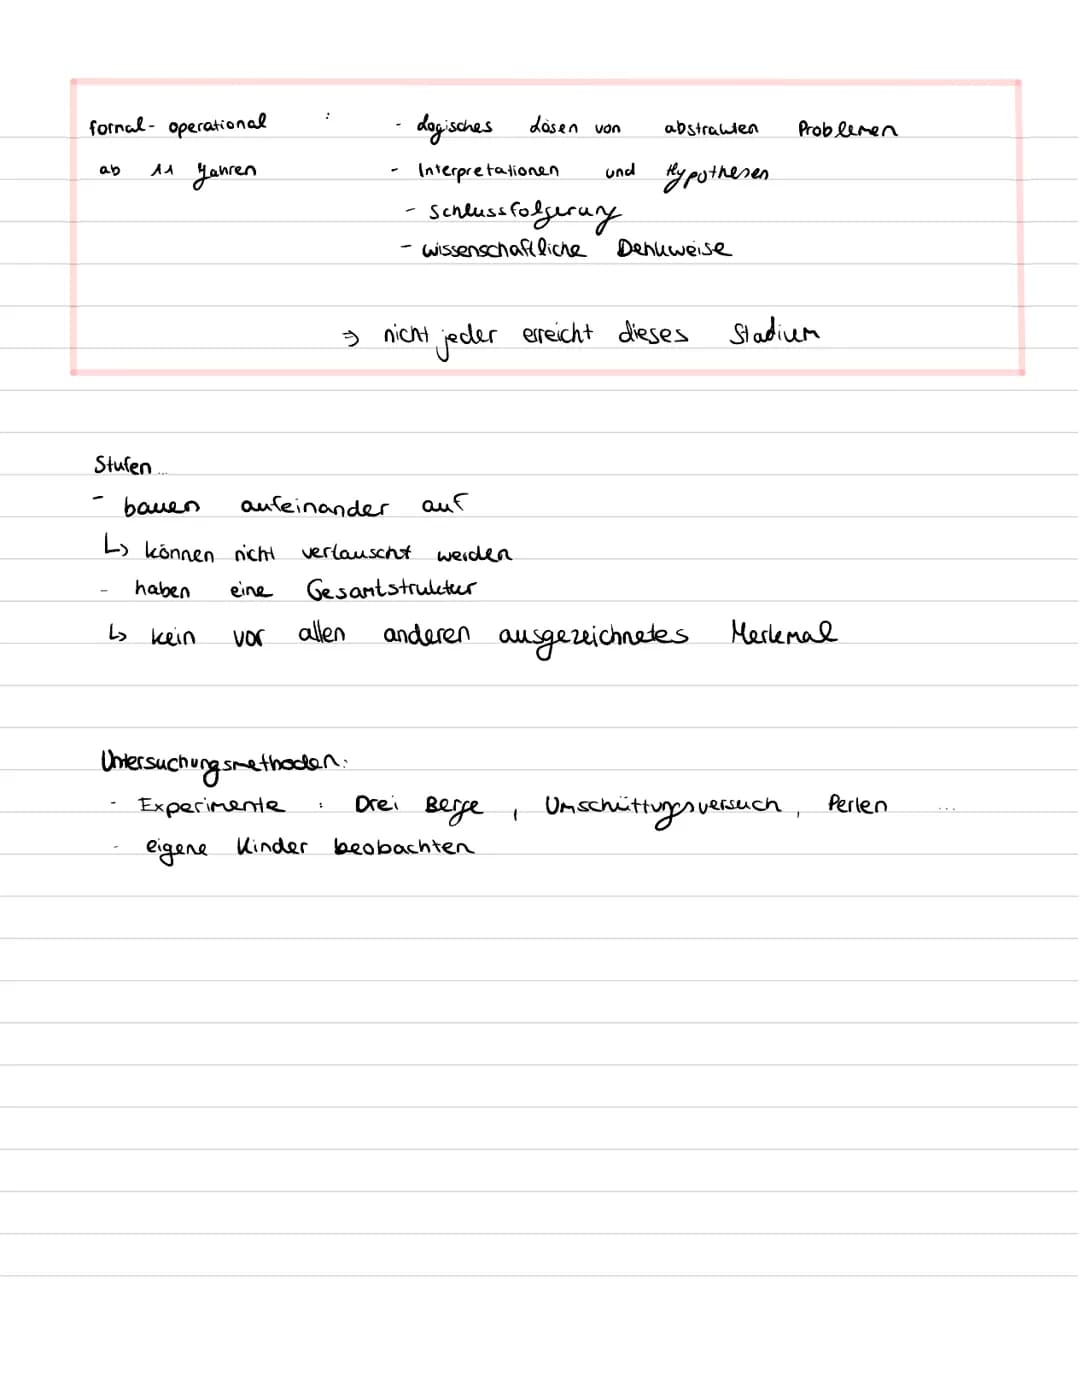 formal-operational : - logisches lösen von abstrakten Problemen
ab 11 Jahren - Interpretationen und Hypothesen
- Schlussfolgerung
- wissenschaftliche Denkweise
⇒ nicht jeder erreicht dieses Stadium
Stufen...
- bauen aufeinander auf
↳ können nicht vertauscht werden
- haben eine Gesamtstruktur
↳ kein vor allen anderen ausgezeichnetes Merkmal
Untersuchungsmethoden:
- Experimente : Drei Berge , Umschüttungsversuch , Perlen ...
- eigene Kinder beobachten